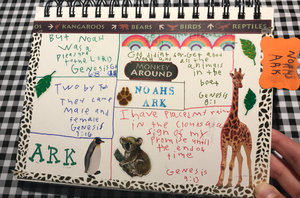 KANGAROOS BEARS BIRDS REPTILES
But Noah
was a
the LORD
Genesis
MONKEY
AROUND
NOAHS
ARK
all the
animals
in the
boat
Genesis
8:1
Two by Two
They came
male and
female
Genesis
7:16
I have placed my
in the clouds as a
sign of my
promise until
the end of
time
Genesis
ARK
NOAH
ARK